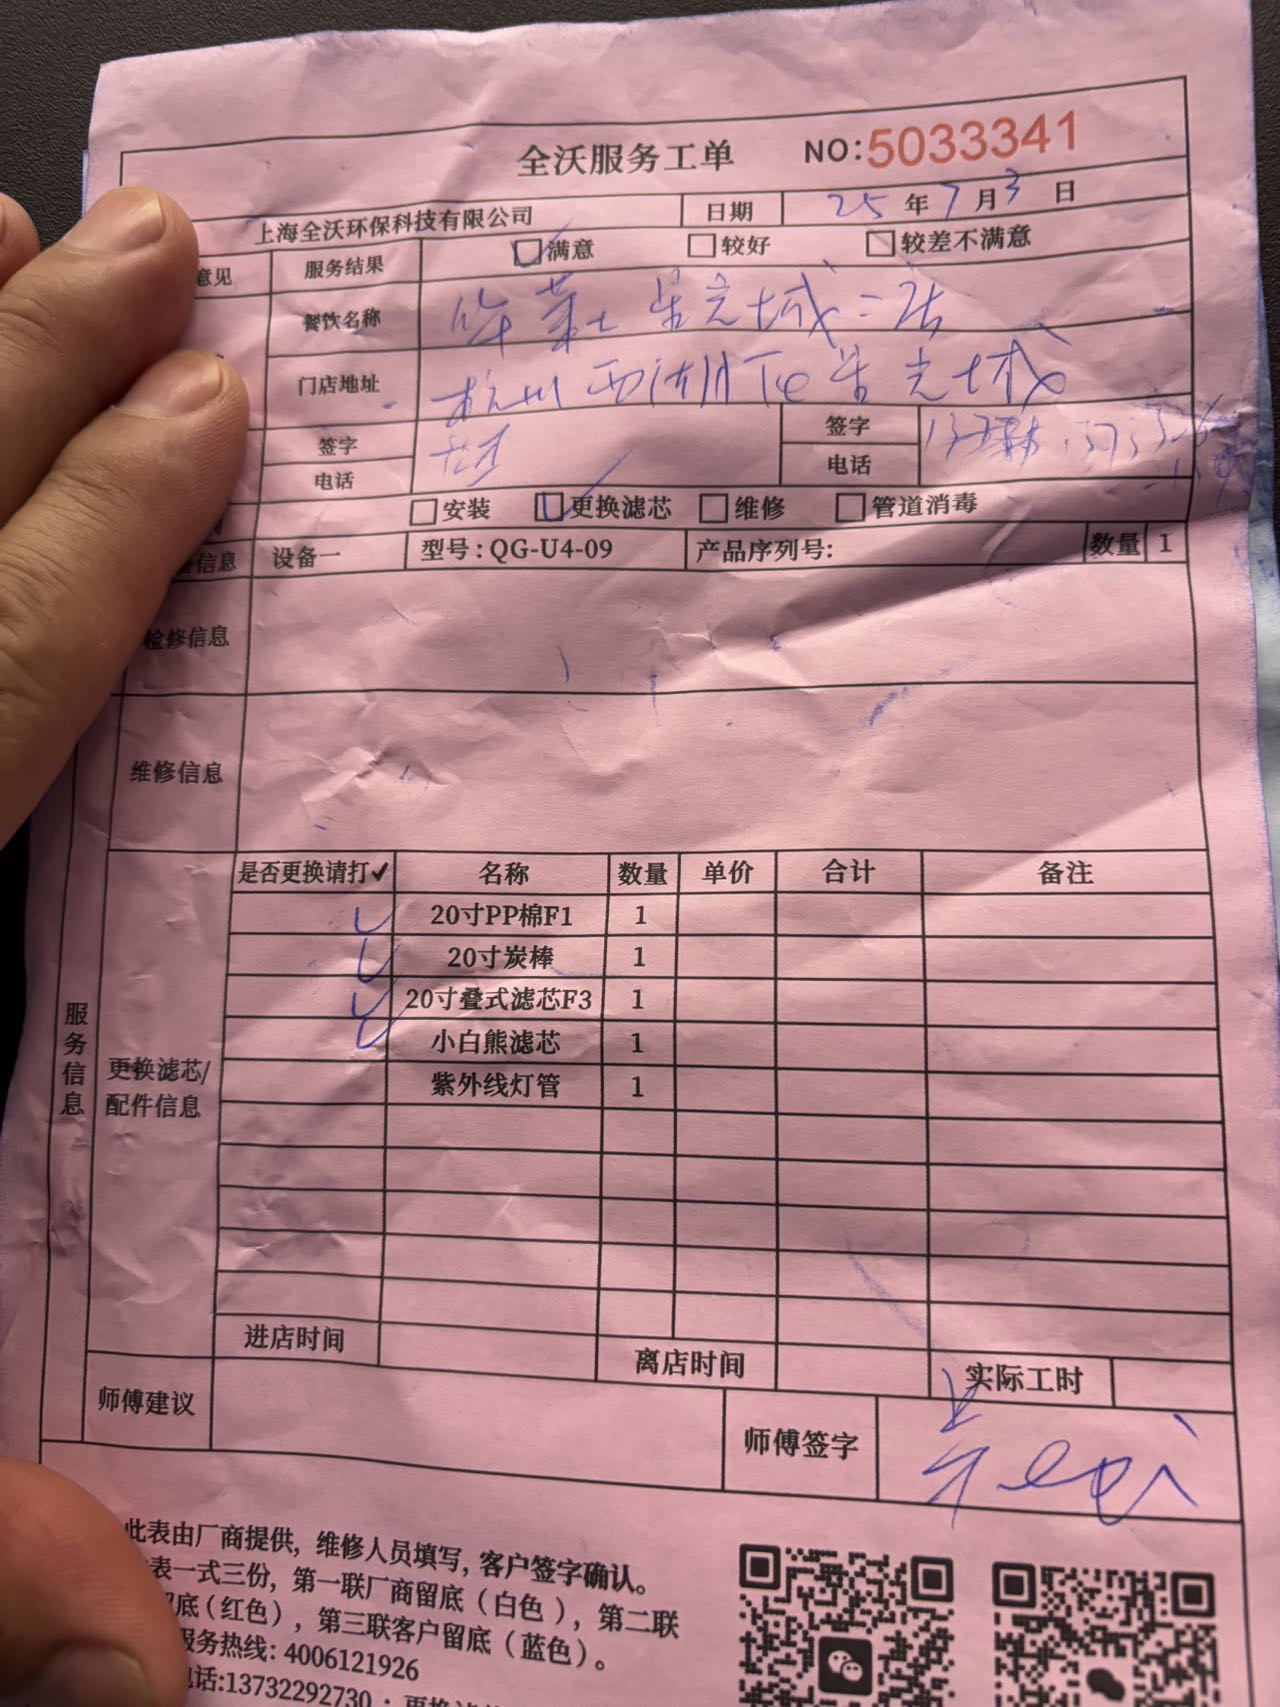 全沃服务工单 NO:5033341
上海全沃环保科技有限公司 日期 25年7月3日
意见 服务结果 满意 较好 较差不满意
餐饮名称 华莱士星光城二店
门店地址 杭州西湖区星光城
签字 签字
电话 电话
安装 更换滤芯 维修 管道消毒
备信息 设备一 型号:QG-U4-09 产品序列号: 数量 1
检修信息
维修信息
是否更换请打✓ 名称 数量 单价 合计 备注
20寸PP棉F1 1
20寸炭棒 1
20寸叠式滤芯F3 1
小白熊滤芯 1
紫外线灯管 1
服务信息
更换滤芯/
配件信息
进店时间 离店时间 实际工时
师傅建议 师傅签字
此表由厂商提供,维修人员填写,客户签字确认。
表一式三份,第一联厂商留底(白色),第二联
留底(红色),第三联客户留底(蓝色)。
服务热线: 4006121926
电话:13732292730